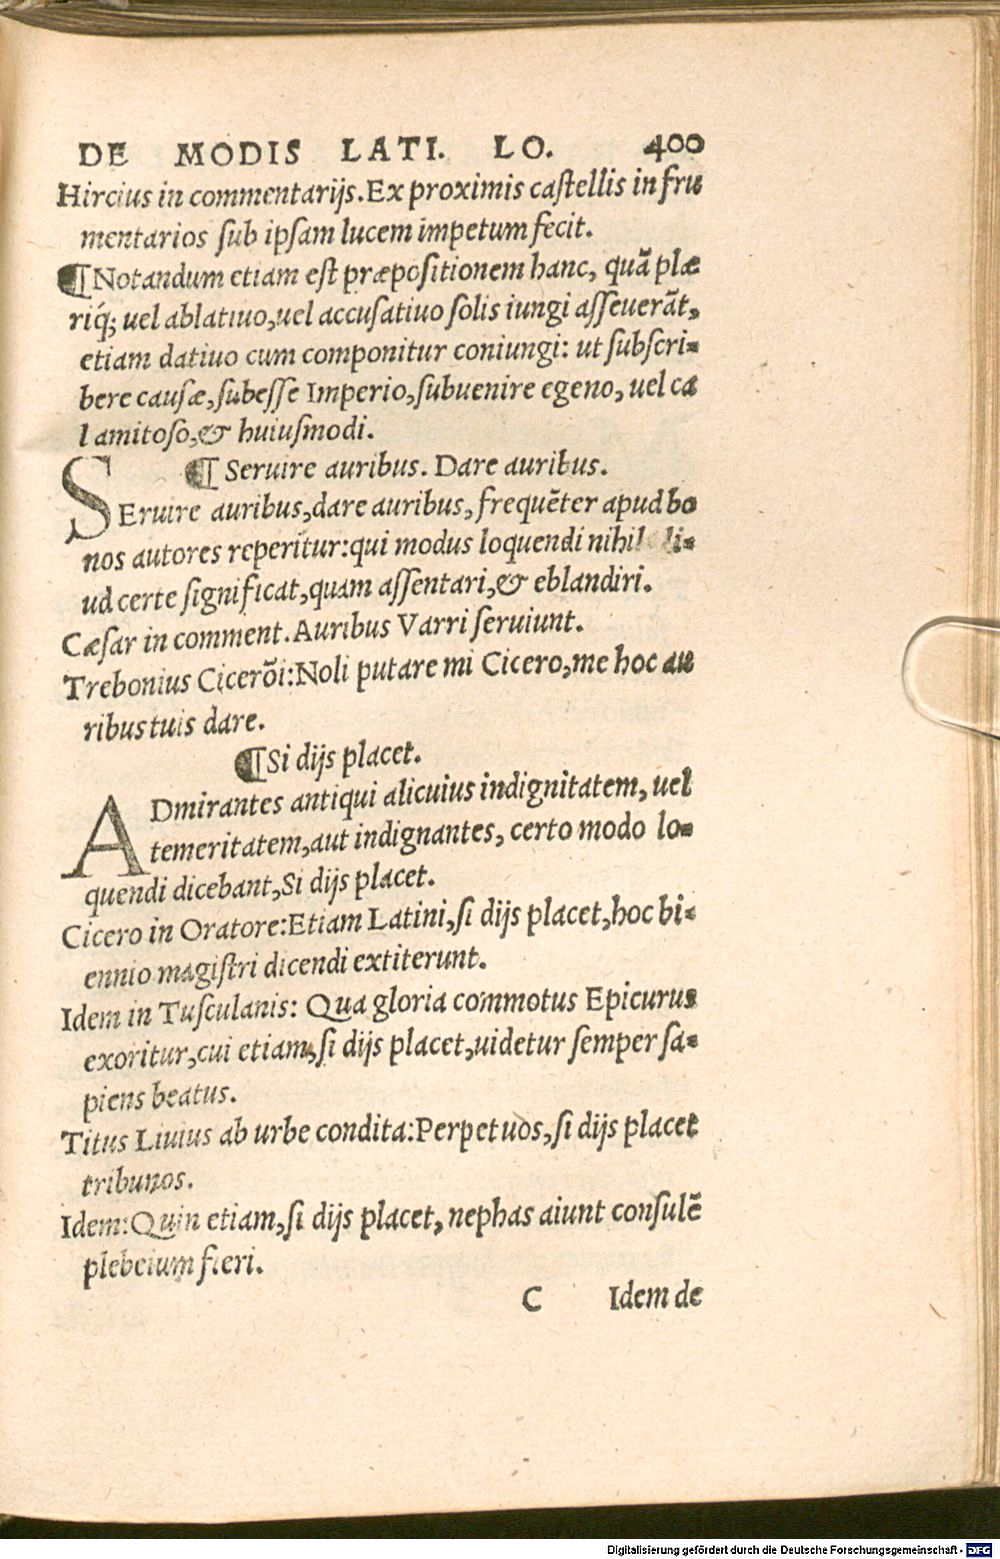 DE MODIS LATI. LO. 400
Hircius in commentarijs. Ex proximis castellis in fru
mentarios sub ipsam lucem impetum fecit.
¶ Notandum etiam est præpositionem hanc, quã plæ
riq́; uel ablatiuo, uel accusatiuo solis iungi asseuerãt,
etiam datiuo cum componitur coniungi: ut subscri-
bere causæ, subesse Imperio, subuenire egeno, uel ca
lamitoso, & huiusmodi.
¶ Seruire auribus. Dare auribus.
SEruire auribus, dare auribus, frequẽter apud bo
nos autores reperitur: qui modus loquendi nihil ali-
ud certe significat, quam assentari, & eblandiri.
Cæsar in comment. Auribus Varri seruiunt.
Trebonius Cicerõi: Noli putare mi Cicero, me hoc au
ribus tuis dare.
¶ Si dijs placet.
ADmirantes antiqui alicuius indignitatem, uel
temeritatem, aut indignantes, certo modo lo-
quendi dicebant, Si dijs placet.
Cicero in Oratore: Etiam Latini, si dijs placet, hoc bi-
ennio magistri dicendi extiterunt.
Idem in Tusculanis: Qua gloria commotus Epicurus
exoritur, cui etiam, si dijs placet, uidetur semper sa-
piens beatus.
Titus Liuius ab urbe condita: Perpetuos, si dijs placet
tribunos.
Idem: Quin etiam, si dijs placet, nephas aiunt consulẽ
plebeium fieri.
C Idem de
Digitalisierung gefördert durch die Deutsche Forschungsgemeinschaft - DFG